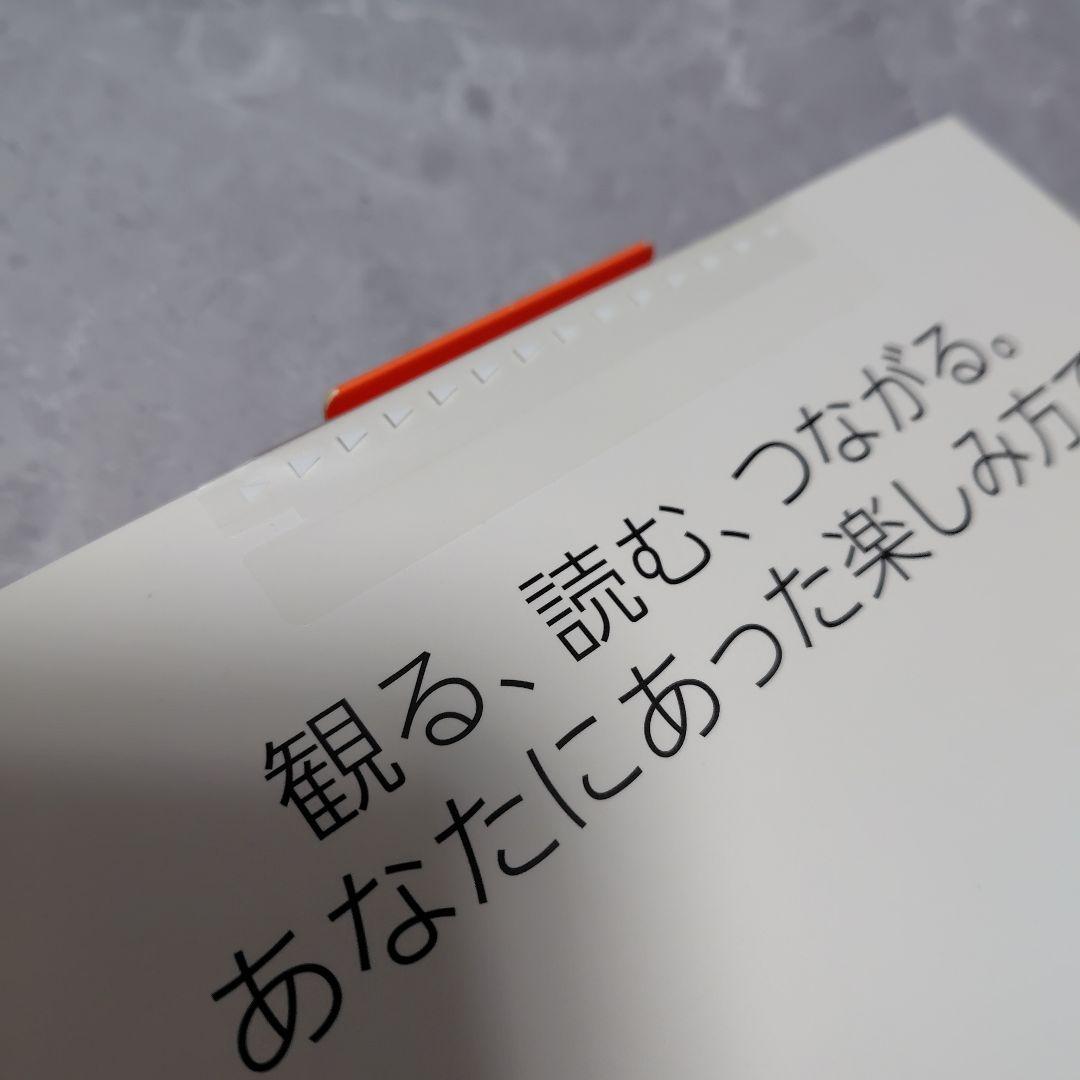 観る、読む、つながる。
あなたにあった楽しみ方